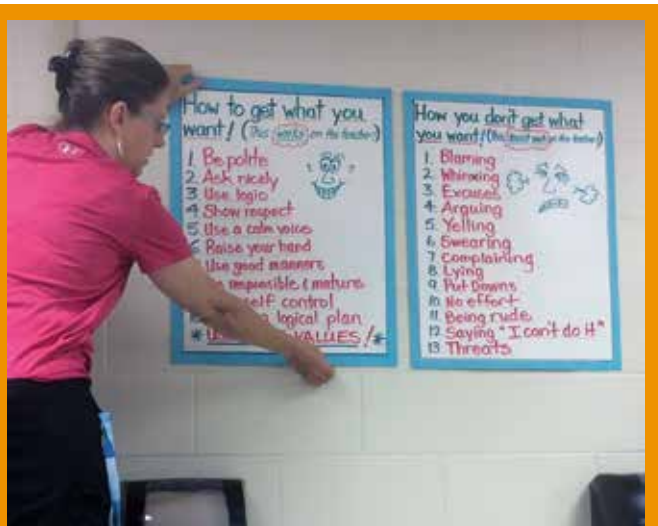 How to get what you
want! (This works on the teacher)
1 Be polite
2. Ask nicely
3. Use logic
4. Show respect
5 Use a calm voice
6. Raise your hand
Use good manners
responsible & mature
self control
logical plan
VALUES!*
How you don't get what
you want! (This out on the teacher!)
1. Blaming
2. Whining
3. Excuses
4. Arguing
5. Yelling
6. Swearing
7 Complaining
8 Lying
9. Put Downs
10. No effort
11. Being rude
12. Saying "I can't do it"
13 Threats